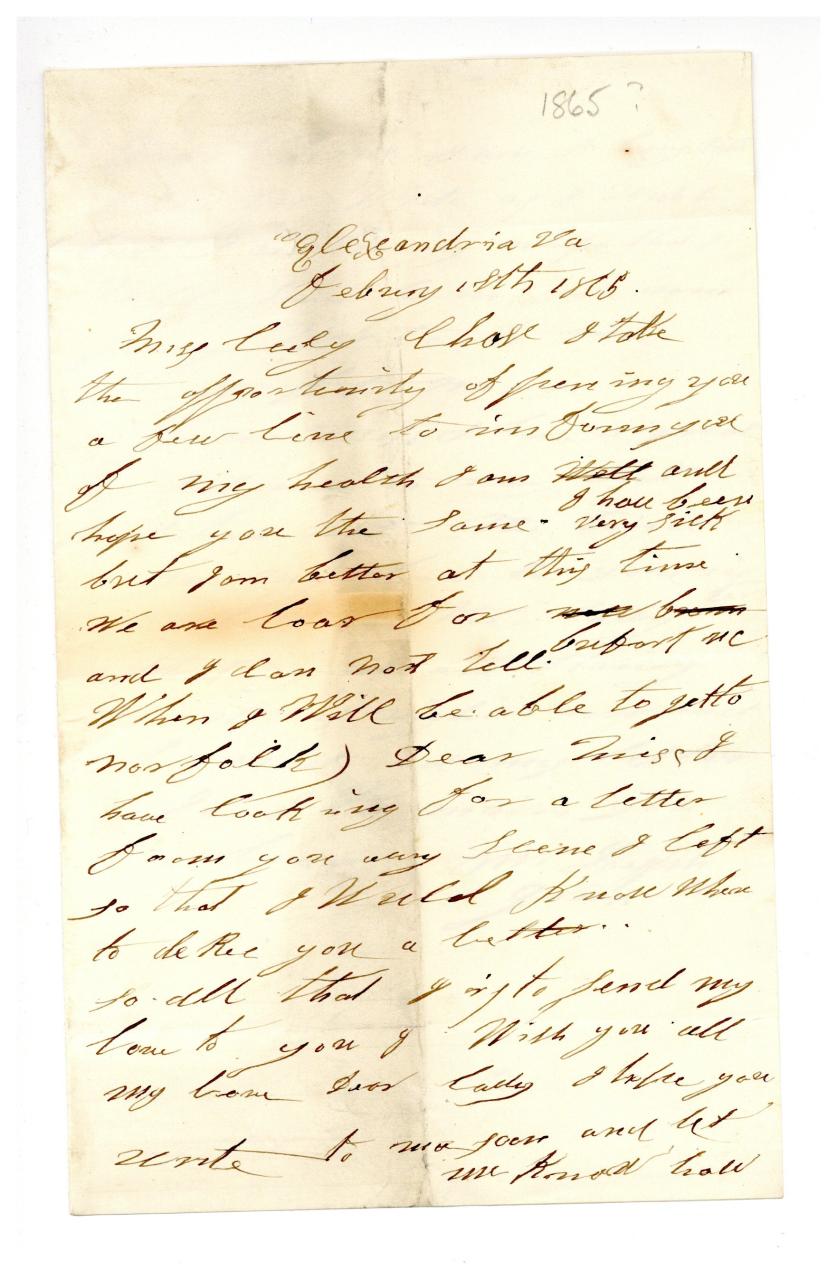 1865 ?
Alexandria Va
Febury 18th 1865.
Miss lady Chase I take
the opportunity of pening you
a few line to inform you
of my health I am Well and
hope you the same. I have been very sick
but I am better at this time
We are loar for beufort NC
and I can not tell.
When I Will be able to get to
norfolk) Dear Miss I
have looking for a letter
from you ever scene I left
so that I Wuld Know Where
to you a letter
so all that I is to send my
love to you I Wish you all
my love Dear lady I hope you
write to me soon and let
me Know how